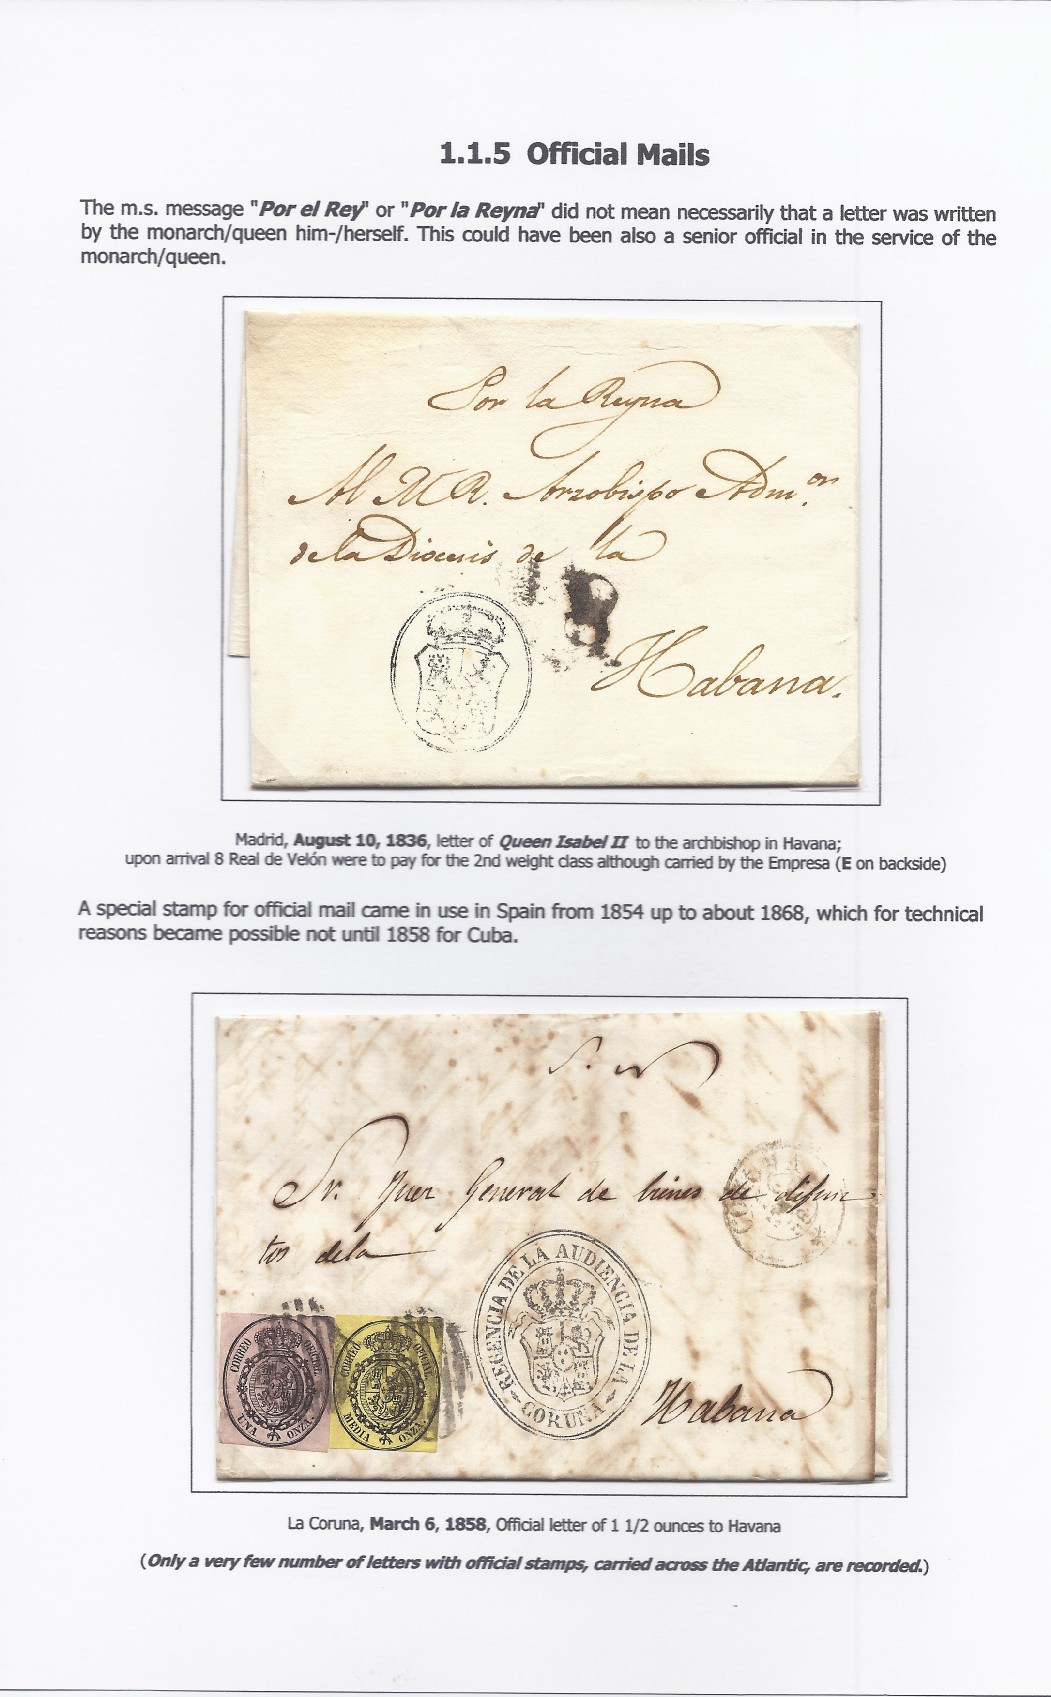 1.1.5 Official Mails
The m.s. message "Por el Rey" or "Por la Reyna" did not mean necessarily that a letter was written
by the monarch/queen him-/herself. This could have been also a senior official in the service of the
monarch/queen.
Por la Reyna
Al M R. Arzobispo Adm.or
de la Diocesis de la
Habana.
Madrid, August 10, 1836, letter of Queen Isabel II to the archbishop in Havana;
upon arrival 8 Real de Velón were to pay for the 2nd weight class although carried by the Empresa (E on backside)
A special stamp for official mail came in use in Spain from 1854 up to about 1868, which for technical
reasons became possible not until 1858 for Cuba.
S. N
Sr. Juez General de bienes de difun
tos de la
REGENCIA DE LA AUDIENCIA DE LA
CORUÑA
CORREO OFICIAL
UNA ONZA.
CORREO OFICIAL
MEDIA ONZA.
Habana
La Coruna, March 6, 1858, Official letter of 1 1/2 ounces to Havana
(Only a very few number of letters with official stamps, carried across the Atlantic, are recorded.)